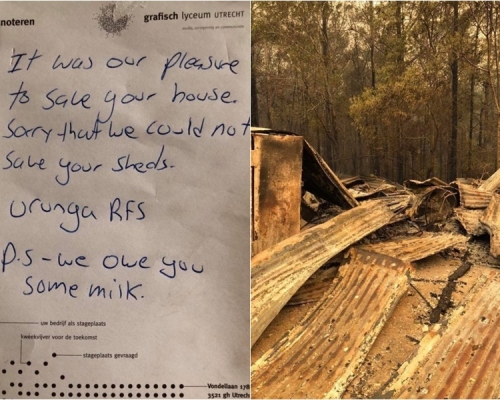 noteren
grafisch lyceum UTRECHT
It was our pleasure
to save your house.
Sorry that we could not
save your sheds.
Urunga RFS
P.S - we owe you
some milk.
uw bedrijf als stageplaats
kweekvijver voor de toekomst
stageplaats gevraagd
Vondellaan 178
3521 gh Utrech